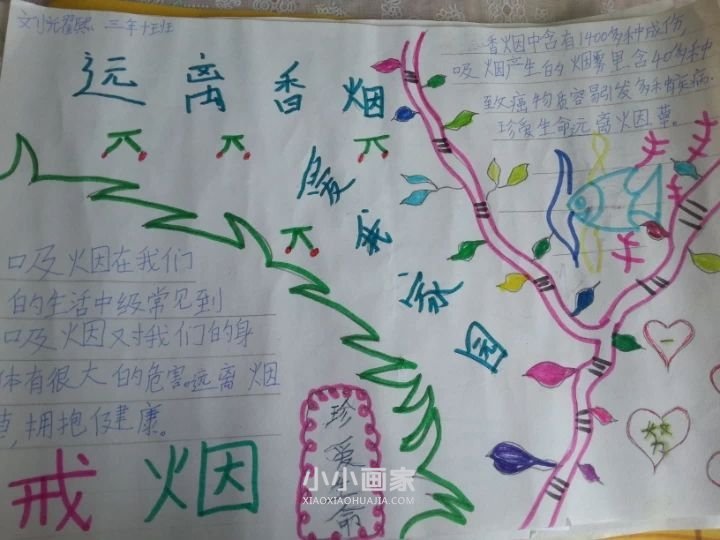 三年十班
香烟中含有1400多种成份,
吸烟产生的烟雾里含40多种
致癌物质容易引发多种疾病.
珍爱生命远离烟草。
远离香烟
爱家园
吸烟在我们
的生活中级常见到
吸烟又对我们的身
体有很大的危害。远离烟
草,拥抱健康。
戒烟
珍爱
命
小小画家
XIAOXIAOHUAJIA.COM
一